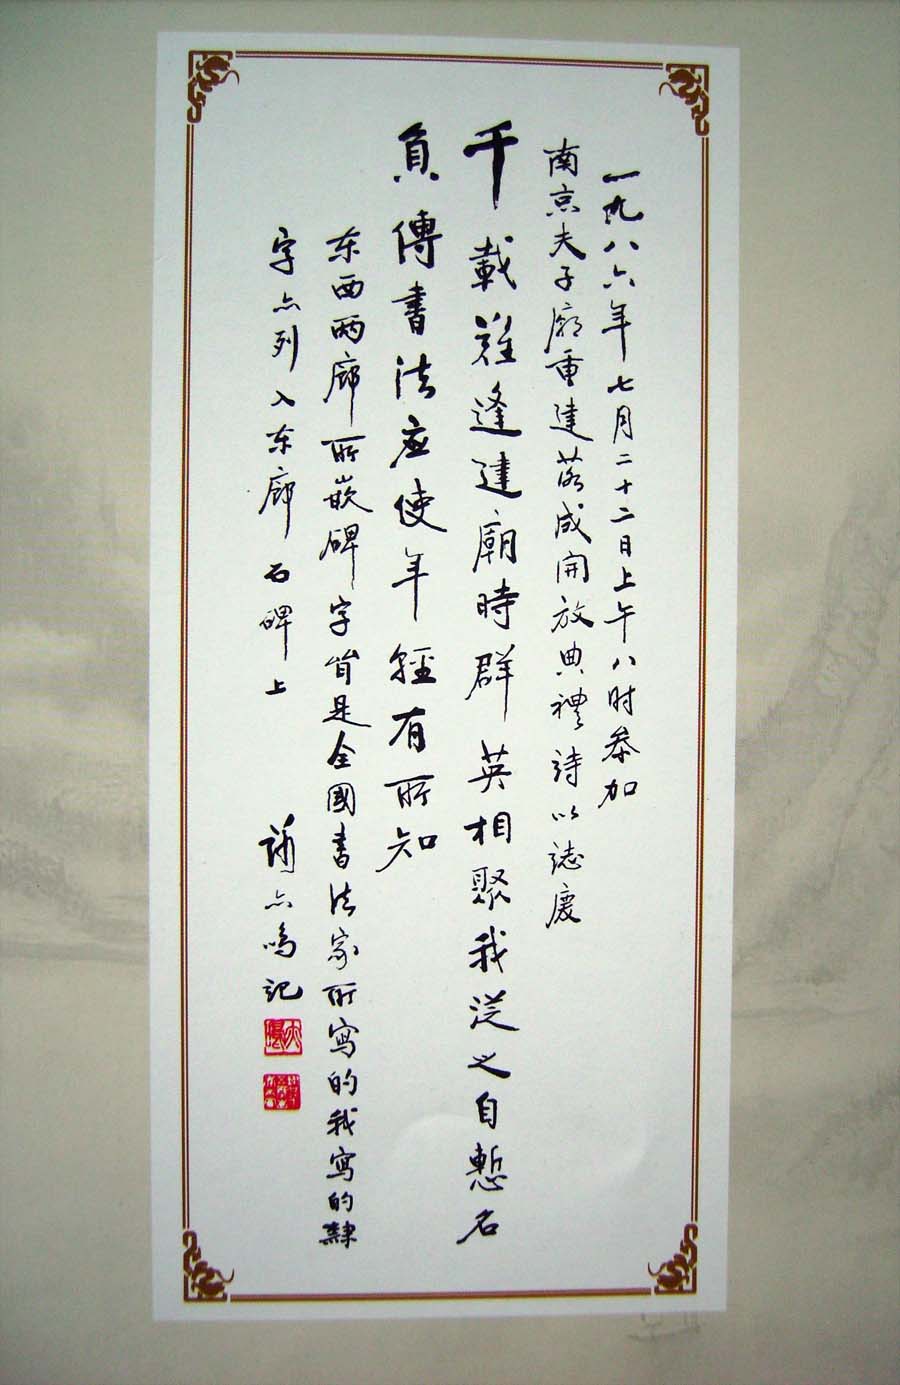 一九八六年七月二十二日上午八时参加
南京夫子廟重建落成开放典禮詩以誌慶
千載難逢建廟時群英相聚我从之自慙名
負傳書法应使年輕有所知
东西两廊所嵌碑字皆是全國書法家所寫的我寫的隸
字亦列入东廊石碑上
亦鸣記